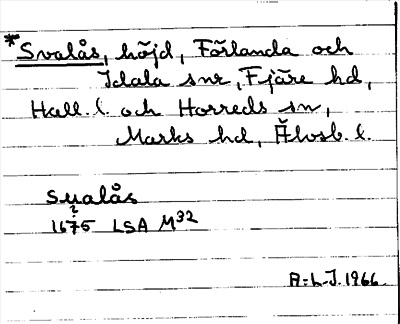 *Svalås, höjd, Förlanda och
Idala snr, Fjäre hd,
Hall. l. och Horreds sn,
Marks hd, Älvsb. l.
Sualås
?
1675 LSA M32
A:L-J. 1966.